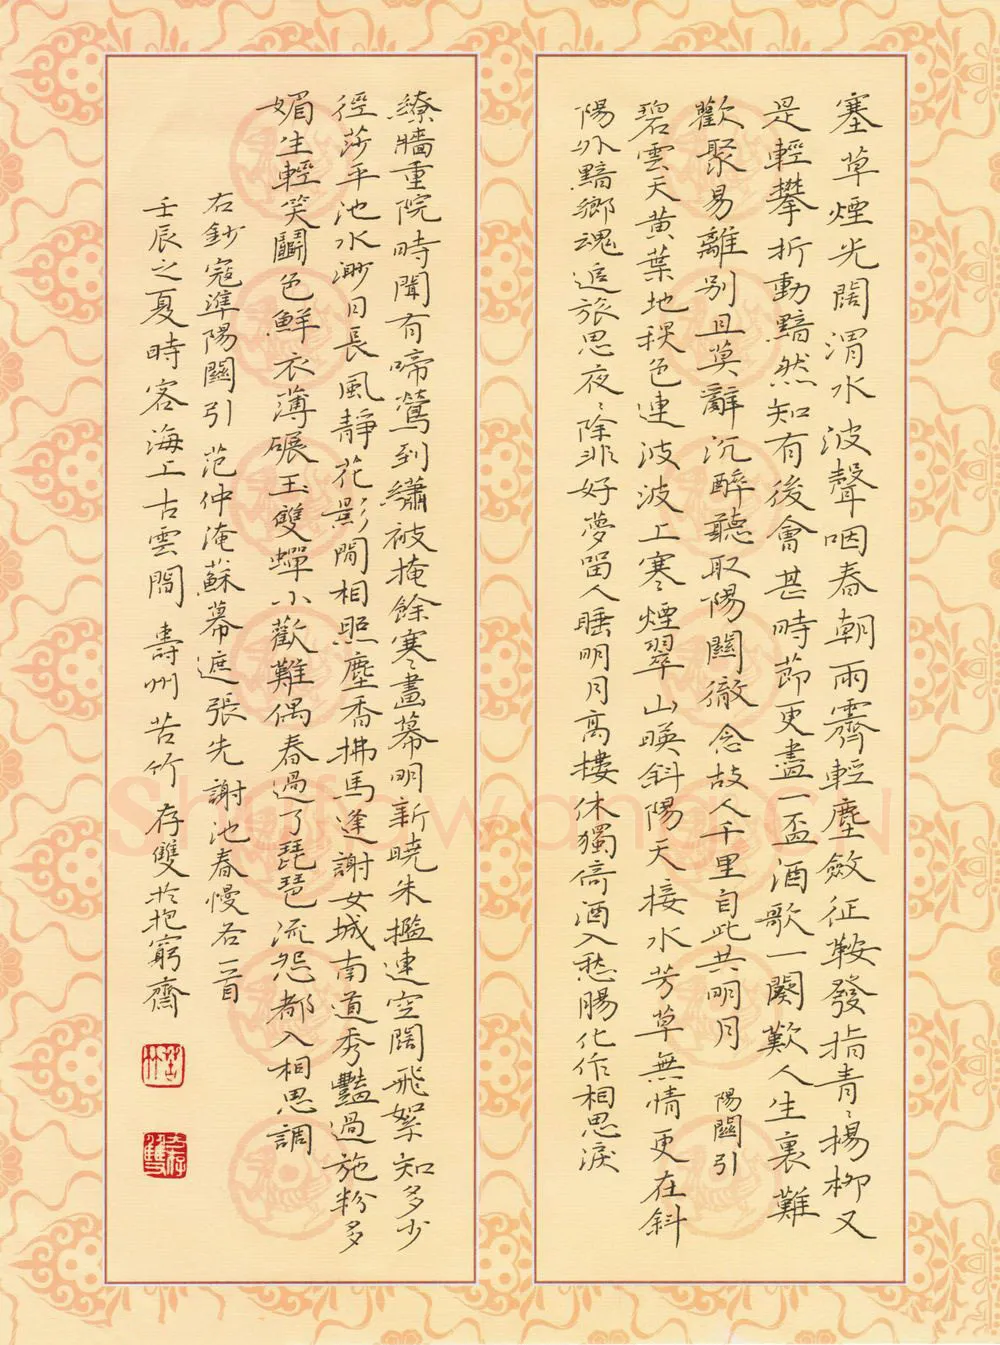 塞草煙光闊渭水波聲咽春朝雨霽輕塵斂征鞍發指青〻楊柳又
是輕攀折動黯然知有後會甚時節更盡一盃酒歌一闋歎人生裏難
歡聚易離別且莫辭沉醉聽取陽關徹念故人千里自此共明月 陽關引
碧雲天黃葉地秋色連波波上寒煙翠山暎斜陽天接水芳草無情更在斜
陽外黯鄉魂追旅思夜〻除非好夢留人睡明月高樓休獨倚酒入愁腸化作相思淚
繚牆重院時聞有啼鶯到繡被掩餘寒畫幕明新曉朱檻連空闊飛絮知多少
徑莎平池水渺日長風靜花影閒相照塵香拂馬逢謝女城南道秀豔過施粉多
媚生輕笑鬬色鮮衣薄碾玉雙蟬小歡難偶春過了琵琶流怨都入相思調
右鈔寇準陽關引范仲淹蘇幕遮張先謝池春慢各一首
壬辰之夏時客海上古雲間 壽州苦竹存雙於抱窮齋
苦竹